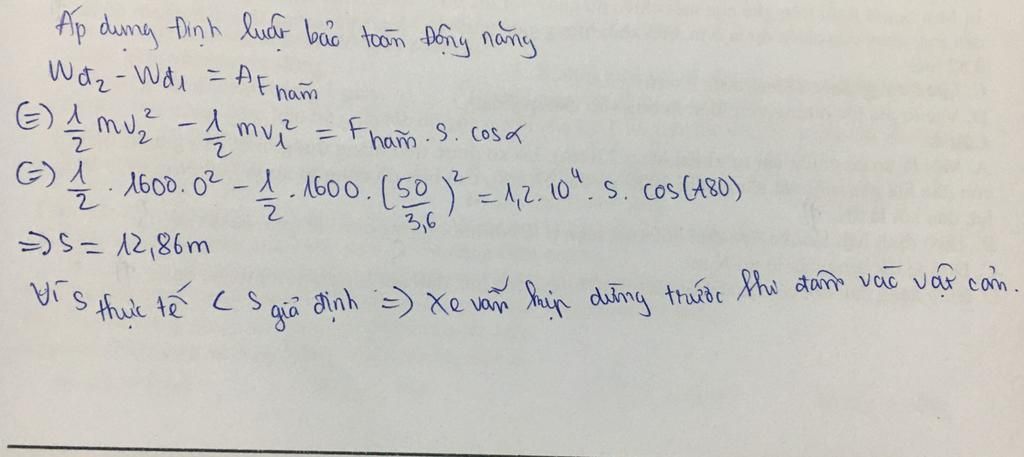 Áp dụng Định luật bảo toàn Động năng
Wđ₂ - Wđ₁ = A_F hãm
(=) 1/2 mv₂² - 1/2 mv₁² = F hãm . S . cosα
(=) 1/2 . 1600.0² - 1/2 . 1600 . (50/3,6)² = 1,2.10⁴ . S . cos(180)
=> S = 12,86m
Vì S thực tế < S giả định => Xe vẫn kịp dừng trước khi đâm vào vật cản.